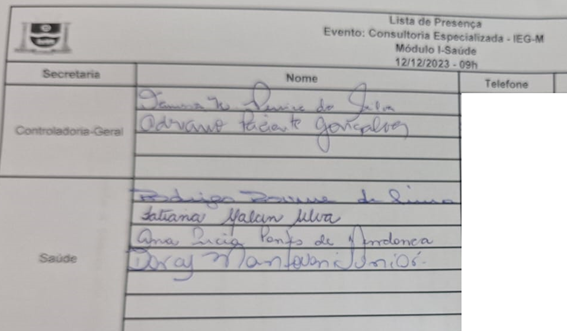 Lista de Presença
Evento: Consultoria Especializada - IEG-M
Módulo I-Saúde
12/12/2023 - 09h
Secretaria Nome Telefone
Controladoria-Geral
da Silva
Adriano Gonçalves
Saúde
Rodrigo de
Tatiana Silva
Ana Lucia de Mendonca
Mantovani Junior.